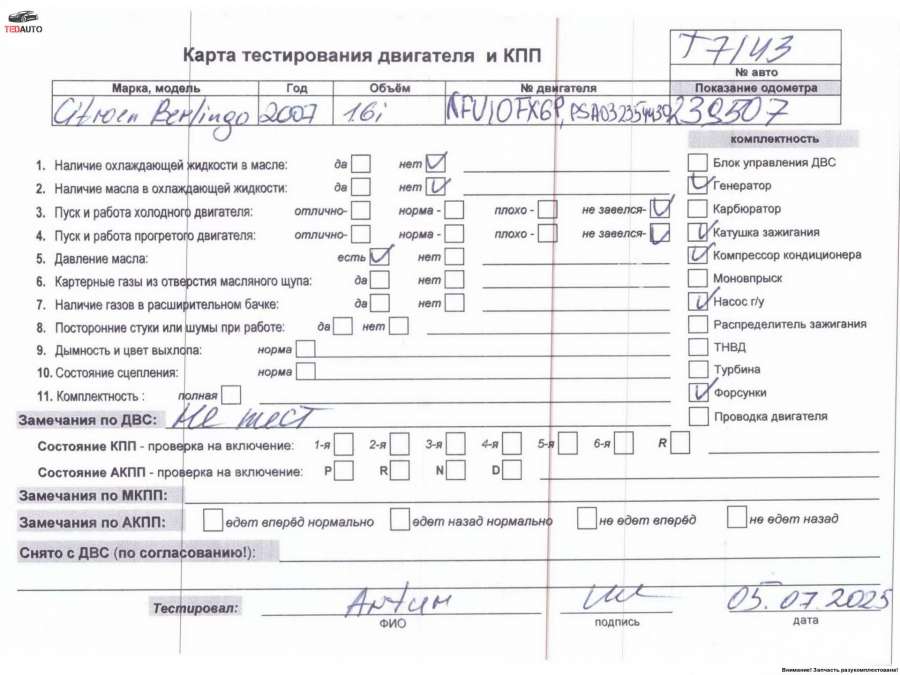 TEDAUTO
Карта тестирования двигателя и КПП
T7/43
№ авто
Марка, модель Год Объём № двигателя Показание одометра
Citroen Berlingo 2007 1.6i NFU10FX6P, PSA032354430 239507
комплектность
1. Наличие охлаждающей жидкости в масле: да нет
Блок управления ДВС
2. Наличие масла в охлаждающей жидкости: да нет
Генератор
3. Пуск и работа холодного двигателя: отлично- норма - плохо - не завелся-
Карбюратор
4. Пуск и работа прогретого двигателя: отлично- норма - плохо - не завелся-
Катушка зажигания
5. Давление масла: есть нет
Компрессор кондиционера
6. Картерные газы из отверстия масляного щупа: да нет
Моновпрыск
7. Наличие газов в расширительном бачке: да нет
Насос г/у
8. Посторонние стуки или шумы при работе: да нет
Распределитель зажигания
9. Дымность и цвет выхлопа: норма
ТНВД
10. Состояние сцепления: норма
Турбина
11. Комплектность : полная
Форсунки
Замечания по ДВС: Не тест
Проводка двигателя
Состояние КПП - проверка на включение: 1-я 2-я 3-я 4-я 5-я 6-я R
Состояние АКПП - проверка на включение: P R N D
Замечания по МКПП:
Замечания по АКПП: едет вперёд нормально едет назад нормально не едет вперёд не едет назад
Снято с ДВС (по согласованию!):
Тестировал: Антин 05.07.2025
ФИО подпись дата
Внимание! Запчасть разукомплектована!